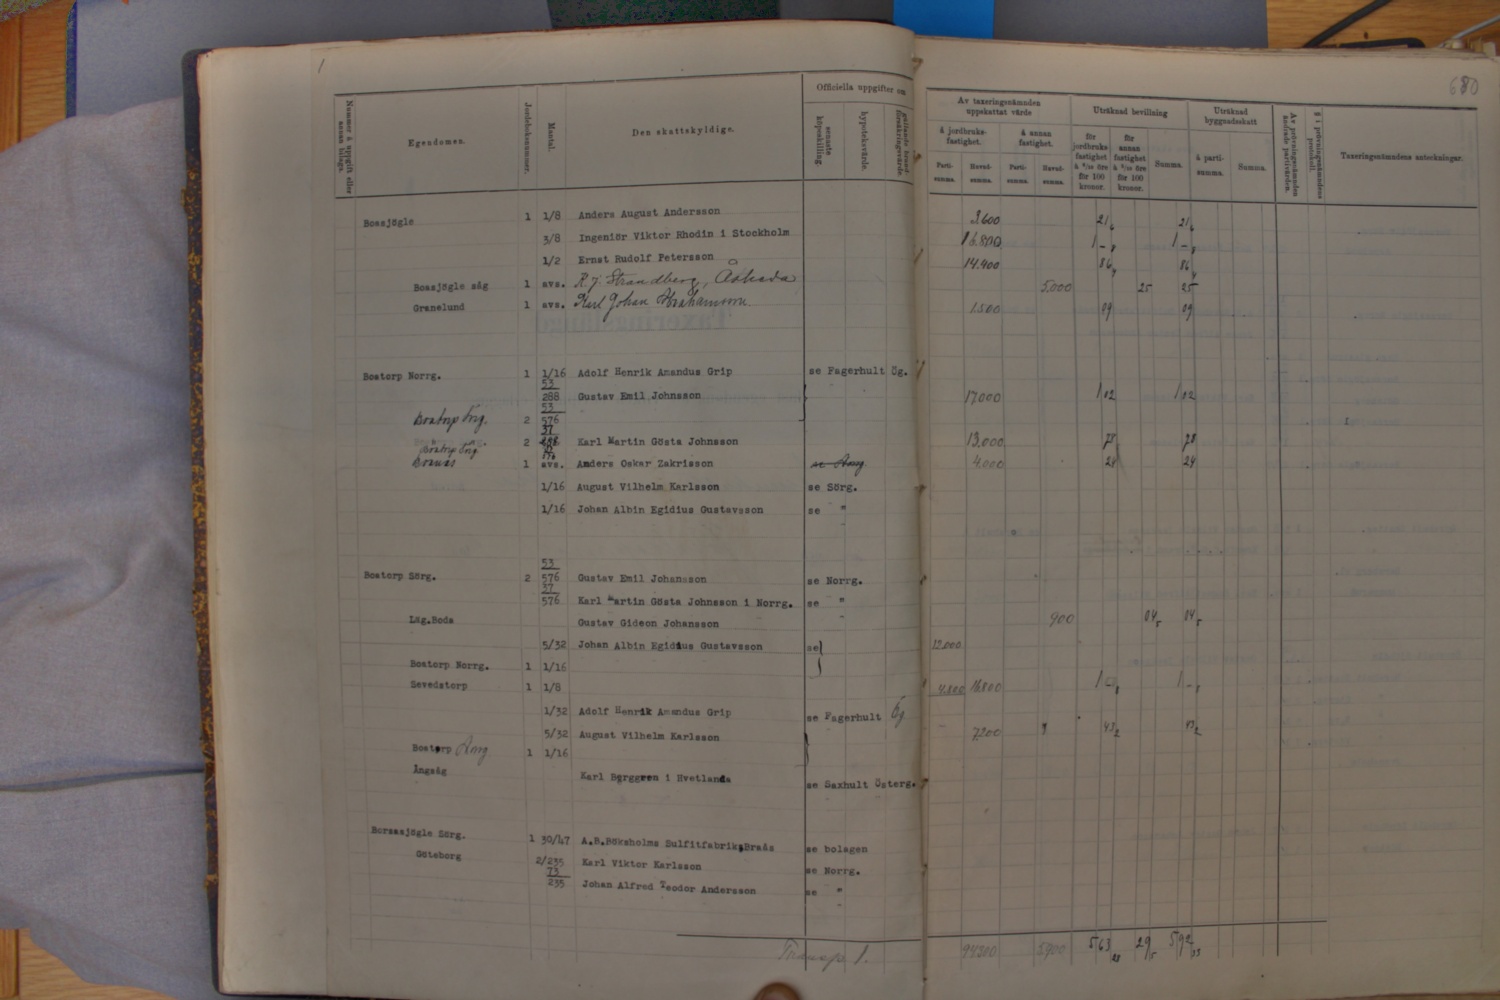 1
680
Nummer å uppgift eller annan bilaga.
Egendomen.
Jordeboksnummer.
Mantal.
Den skattskyldige.
Officiella uppgifter om
senaste köpeskilling.
hypoteksvärde.
gällande brandförsäkringsvärde.
Av taxeringsnämnden uppskattat värde
å jordbruksfastighet.
å annan fastighet.
Partisumma.
Huvudsumma.
Partisumma.
Huvudsumma.
Uträknad bevillning
för jordbruksfastighet å 6/10 öre för 100 kronor.
för annan fastighet å 5/10 öre för 100 kronor.
Summa.
Uträknad byggnadsskatt
å partisumma.
Summa.
Av prövningsnämnden ändrade partivärden.
§ i prövningsnämndens protokoll.
Taxeringsnämndens anteckningar.
Boasjögle 1 1/8 Anders August Andersson 3.600 21,6 21,6
3/8 Ingeniör Viktor Rhodin i Stockholm 16.800 1 -,8 1 -,8
1/2 Ernst Rudolf Petersson 14.400 86,4 86,4
Boasjögle såg 1 avs. R. J. Strandberg, Åskeda 5.000 25 25
Granelund 1 avs. Karl Johan Abrahamsson 1.500 09 09
Boatorp Norrg. 1 1/16 Adolf Henrik Amandus Grip se Fagerhult Ög.
53/288 Gustav Emil Johnsson 17.000 1 02 1 02
Boatorp Sörg. 2 53/576
Boatorp Sörg. 2 37 Karl Martin Gösta Johnsson 13.000 78 78
Boanäs 1 avs. Anders Oskar Zakrisson 4.000 24 24
1/16 August Vilhelm Karlsson se Sörg.
1/16 Johan Albin Egidius Gustavsson se "
Boatorp Sörg. 2 53/576 Gustav Emil Johansson se Norrg.
37/576 Karl Martin Gösta Johnsson i Norrg. se "
Läg.Boda Gustav Gideon Johansson 900 04,5 04,5
5/32 Johan Albin Egidius Gustavsson se 12.000
Boatorp Norrg. 1 1/16
Sevedstorp 1 1/8 4.800 16.800 1 -,8 1 -,8
1/32 Adolf Henrik Amandus Grip se Fagerhult Ög
5/32 August Vilhelm Karlsson 7.200 43,2 43,2
Boatorp Norrg 1 1/16
Ångsåg Karl Berggren i Hvetlanda se Saxhult Österg.
Borsasjögle Sörg. 1 30/47 A.B.Böksholms Sulfitfabrik,Braås se bolagen
Göteborg 2/235 Karl Viktor Karlsson se Norrg.
73/235 Johan Alfred Teodor Andersson se "
Transp. 1. 94300 5900 5 63,28 29,5 5 92,33